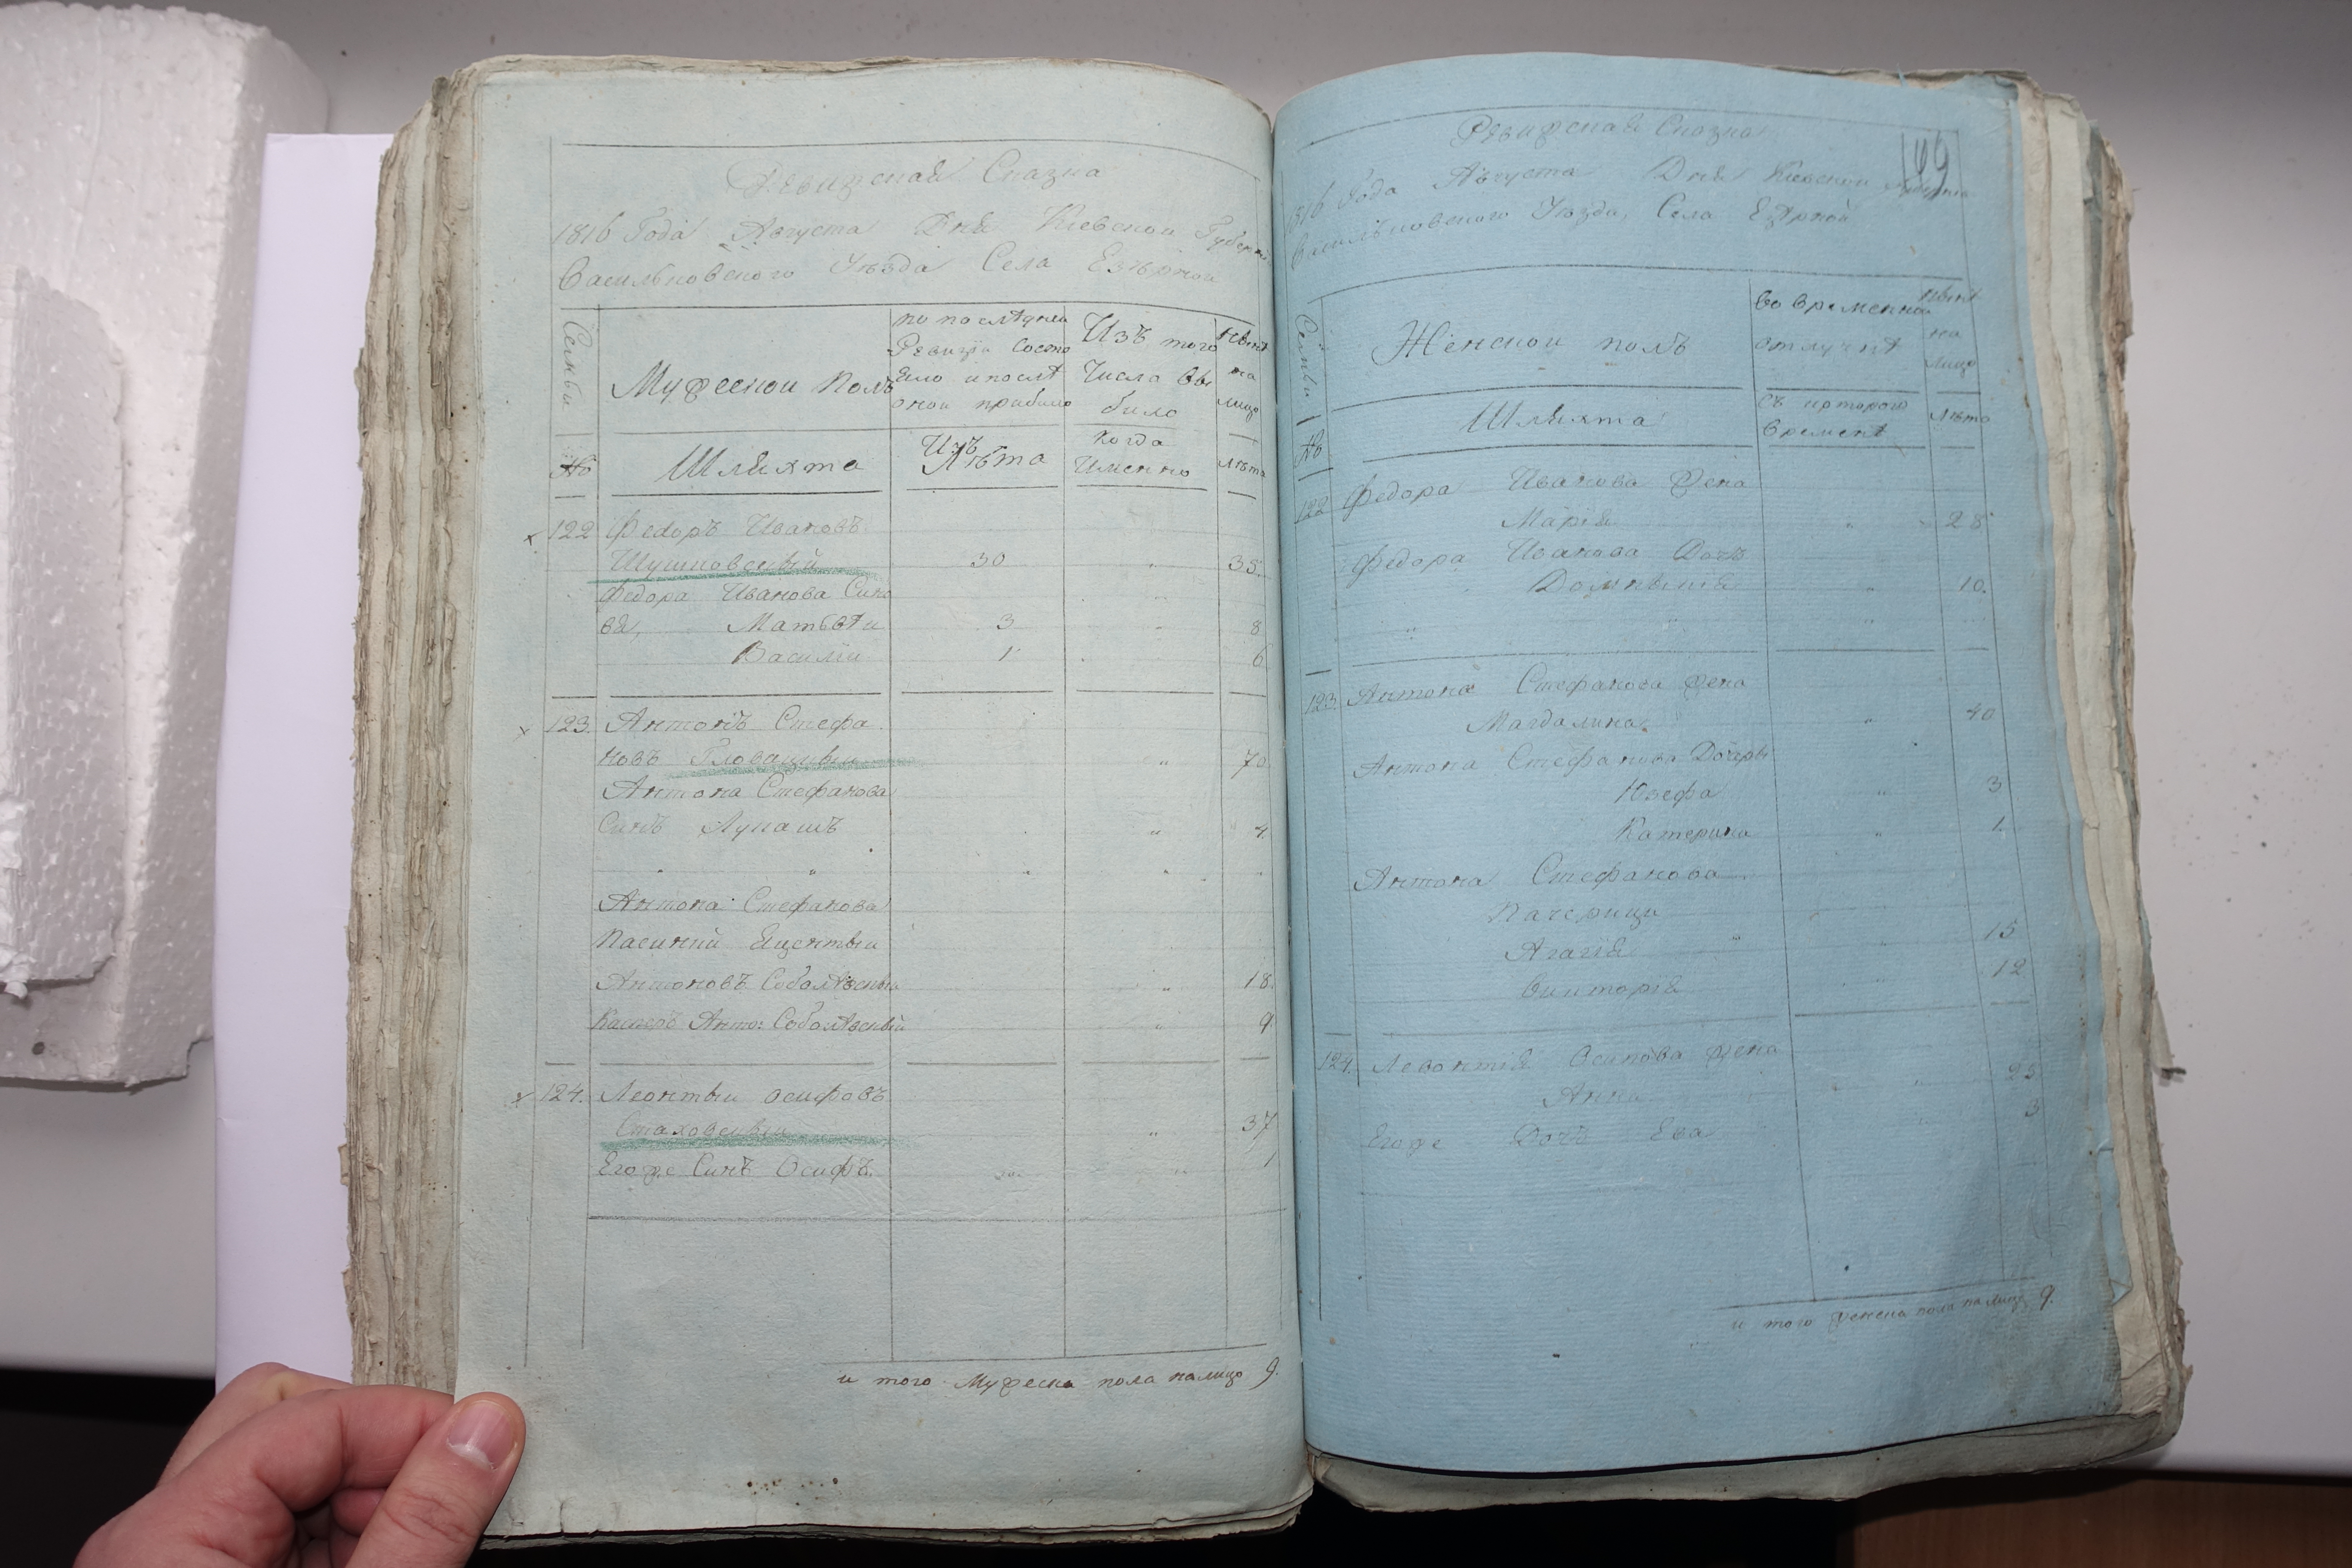 Ревизская Сказка
1816 Года Августа Дня Киевской Губерни
Васильковского Уезда Села Езѣрной
Семьи
Мужескои Полъ
по последнеи
Ревизіи Состо
яло и послѣ
оной прибыло
Изъ того
Числа вы
было
нынѣ
на
лицо
№
Шляхта
Изъ
Лѣта
Когда
Именно
Лѣта
122 Федоръ Ивановъ
Шушковский 30 " 35.
Федора Иванова Сино
вя, Матвѣи 3 " 8
Василіи 1 6
123. Антонъ Стефа
новъ Гловацкыи " 70.
Антона Стефанова
Синъ Лукашъ " 4.
Антона Стефанова
Пасинкй Яцентыи
Антоновъ Соболѣвскый " 18.
Касперъ Анто: Соболѣвскый " 9
124. Леонтыи Осифовъ
Стаховскыи " 37
Егоже Синъ Осифъ. " 1
и того Мужеска пола налицо 9.
199
Ревизская Сказка
1816 Года Августа Дня Киевскои
Васильковского Уезда, Села Езѣрной
Семьи
Женскои полъ
во временной
отлучкѣ
нынѣ
на
лицо
№
Шляхта
Съ которого
времени
Лѣта
122 Федора Иванова Жена
Марія " 28
Федора Иванова Дочъ
Домныкія " 10.
123. Антона Стефанова Жена
Магдалина " 40
Антона Стефанова Дочеры
Юзефа " 3
Катерина " 1.
Антона Стефанова
Пачерици
Агагія " 15
Викторія " 12
124. Левонтія Осипова Жена
Анна " 25
Егоже Дочъ Ева " 3
и того женска пола налицо 9.